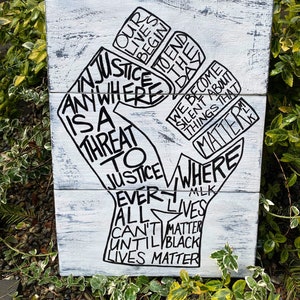 OUR
LIVES
BEGIN
TO END
THE
DAY
WE BECOME
SILENT ABOUT
THINGS THAT
MATTER
INJUSTICE
ANYWHERE
IS A
THREAT
TO
JUSTICE
EVERY
WHERE
MLK
ALL LIVES
CAN'T MATTER
UNTIL BLACK
LIVES MATTER